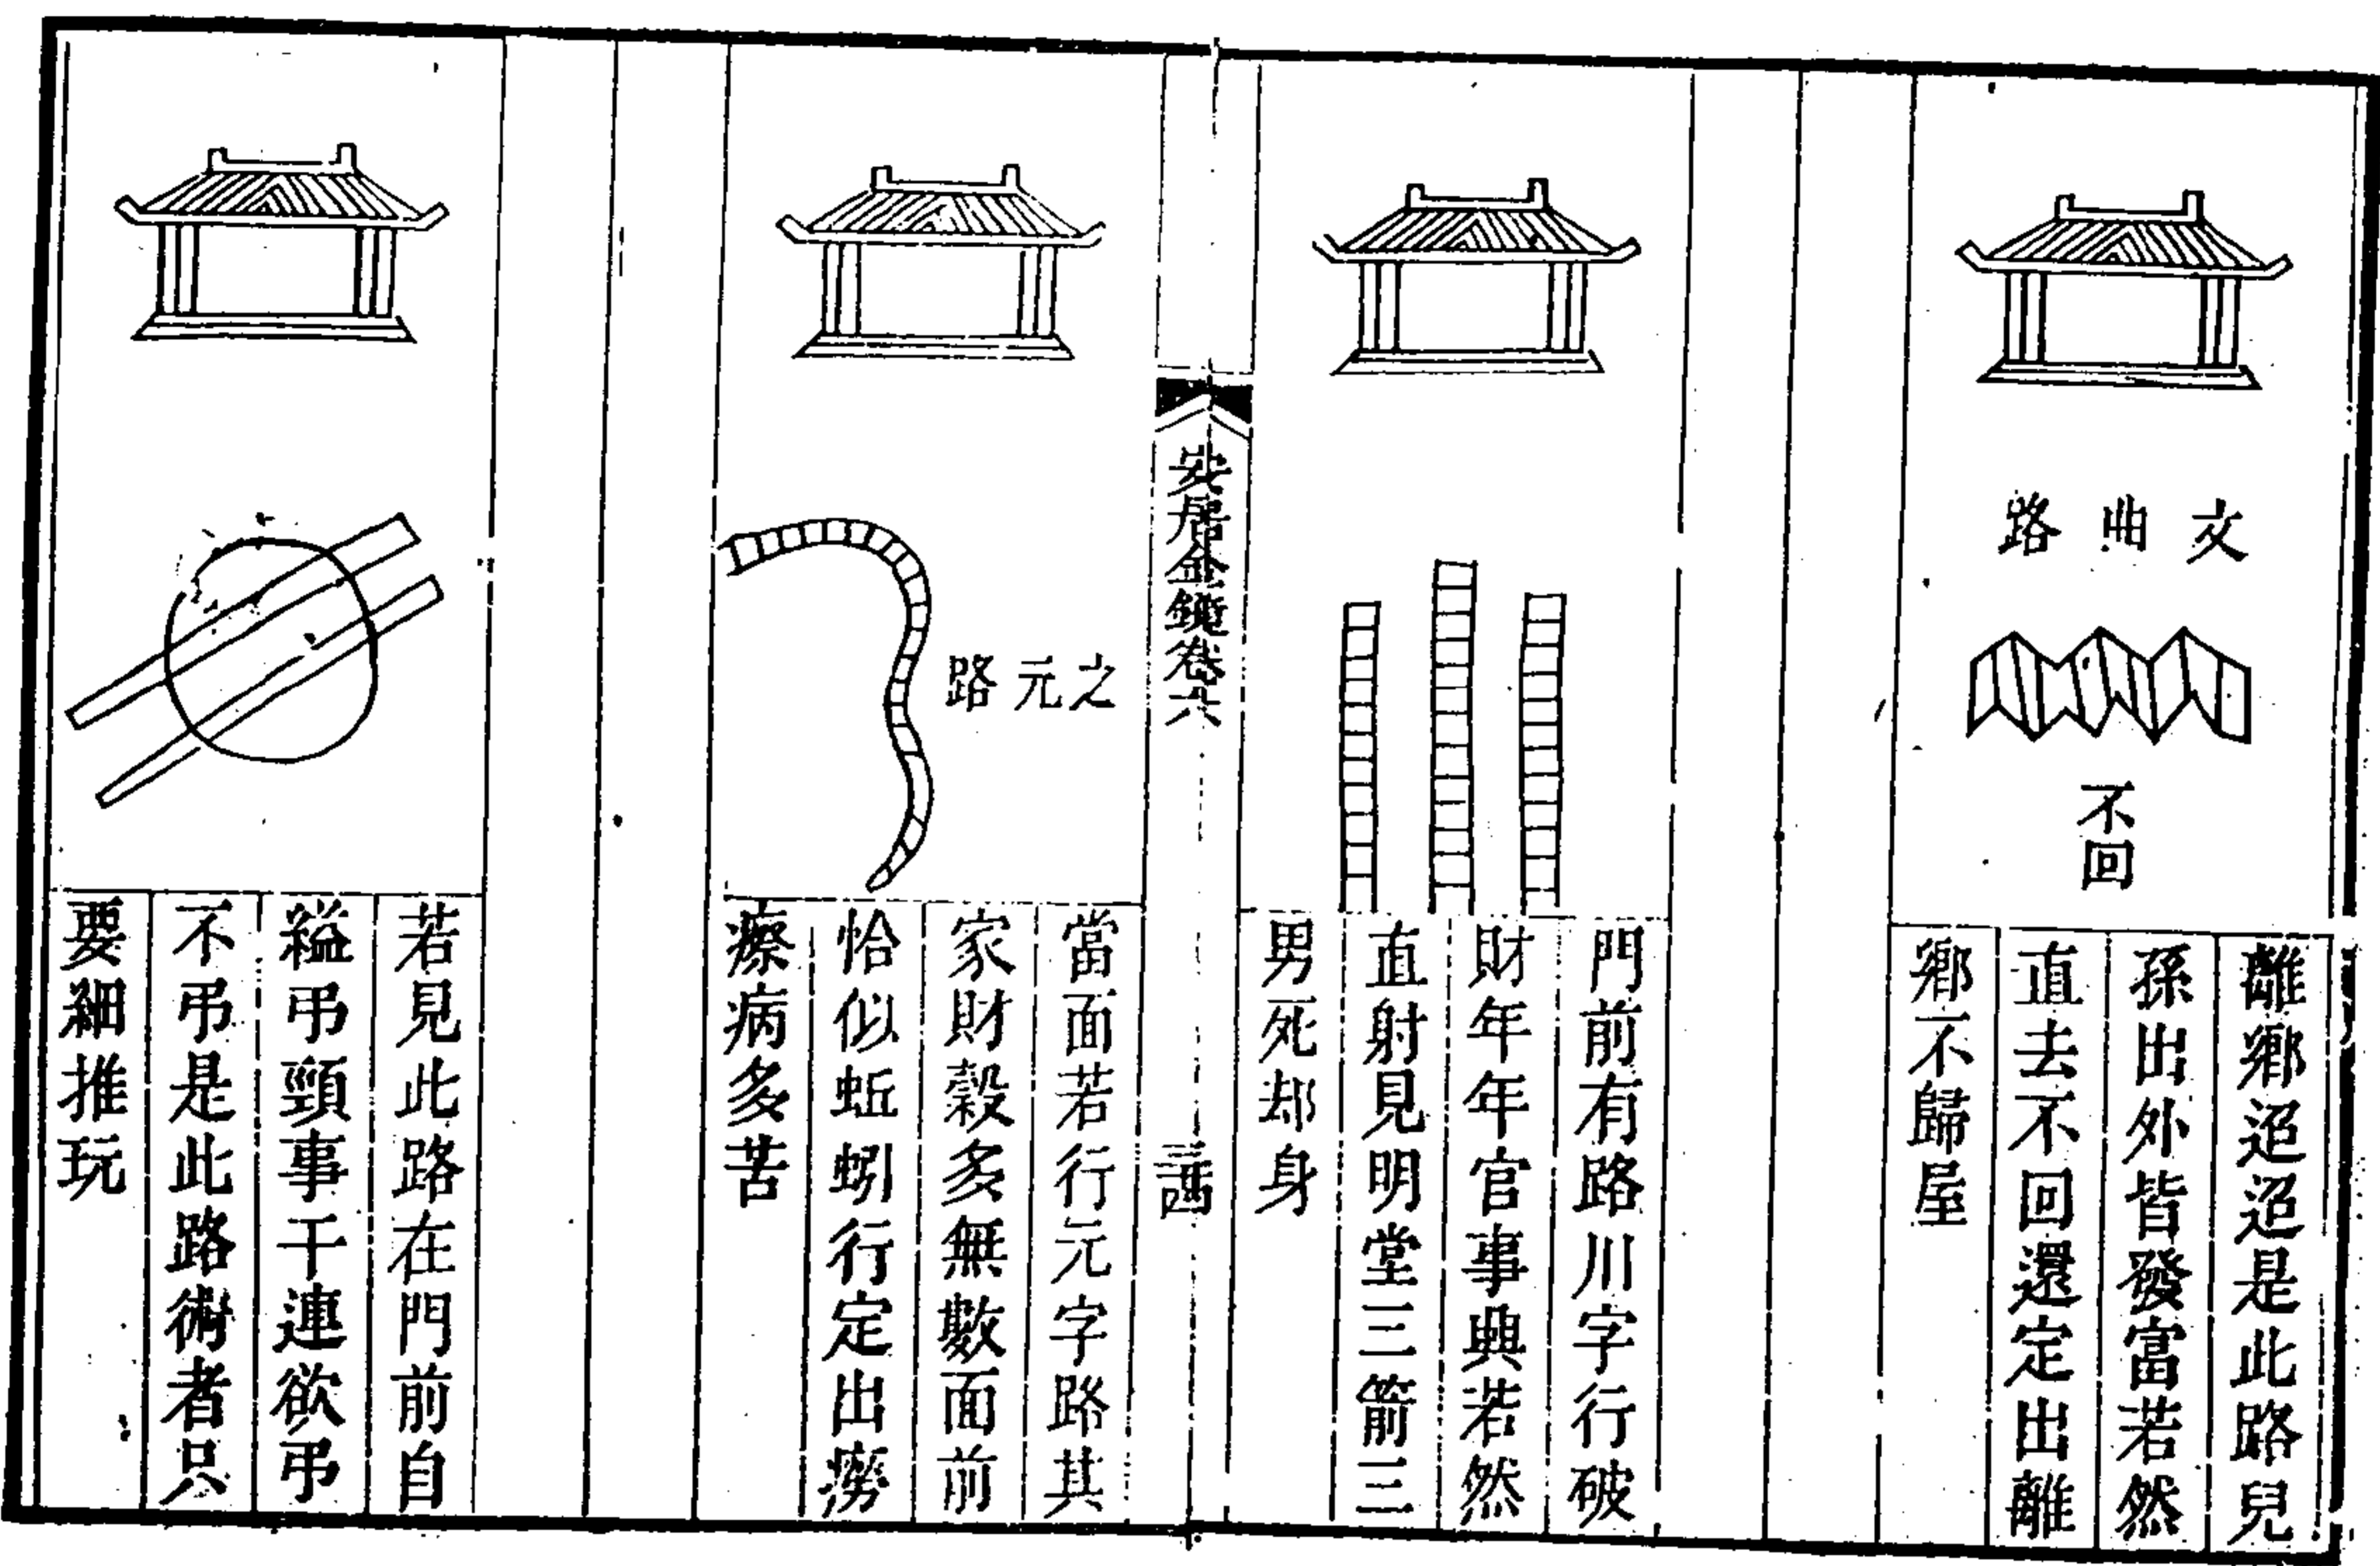 文曲路
不回
離鄉迢迢是此路兒
孫出外皆發富若然
直去不回還定出離
鄉不歸屋
門前有路川字行破
財年年官事興若然
直射見明堂三箭三
男死却身
安居金鏡卷六
之元路
當面若行元字路其
家財穀多無數面前
恰似蚯蚓行定出癆
瘵病多苦
若見此路在門前自
縊弔頸事干連欲弔
不弔是此路術者只
要細推玩